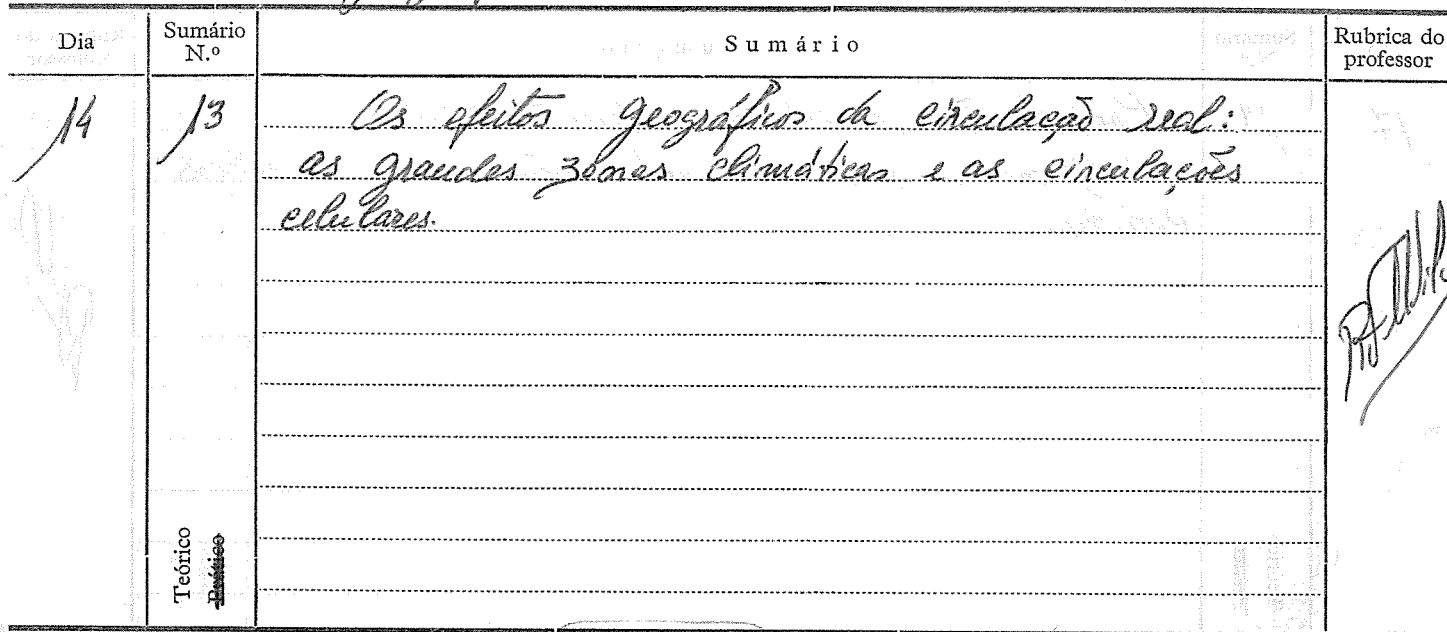 Dia
Sumário N.º
Sumário
Rubrica do professor
14
13
Os efeitos geográficos da circulação real:
as grandes zonas climáticas e as circulações
celulares.
Teórico
Prático